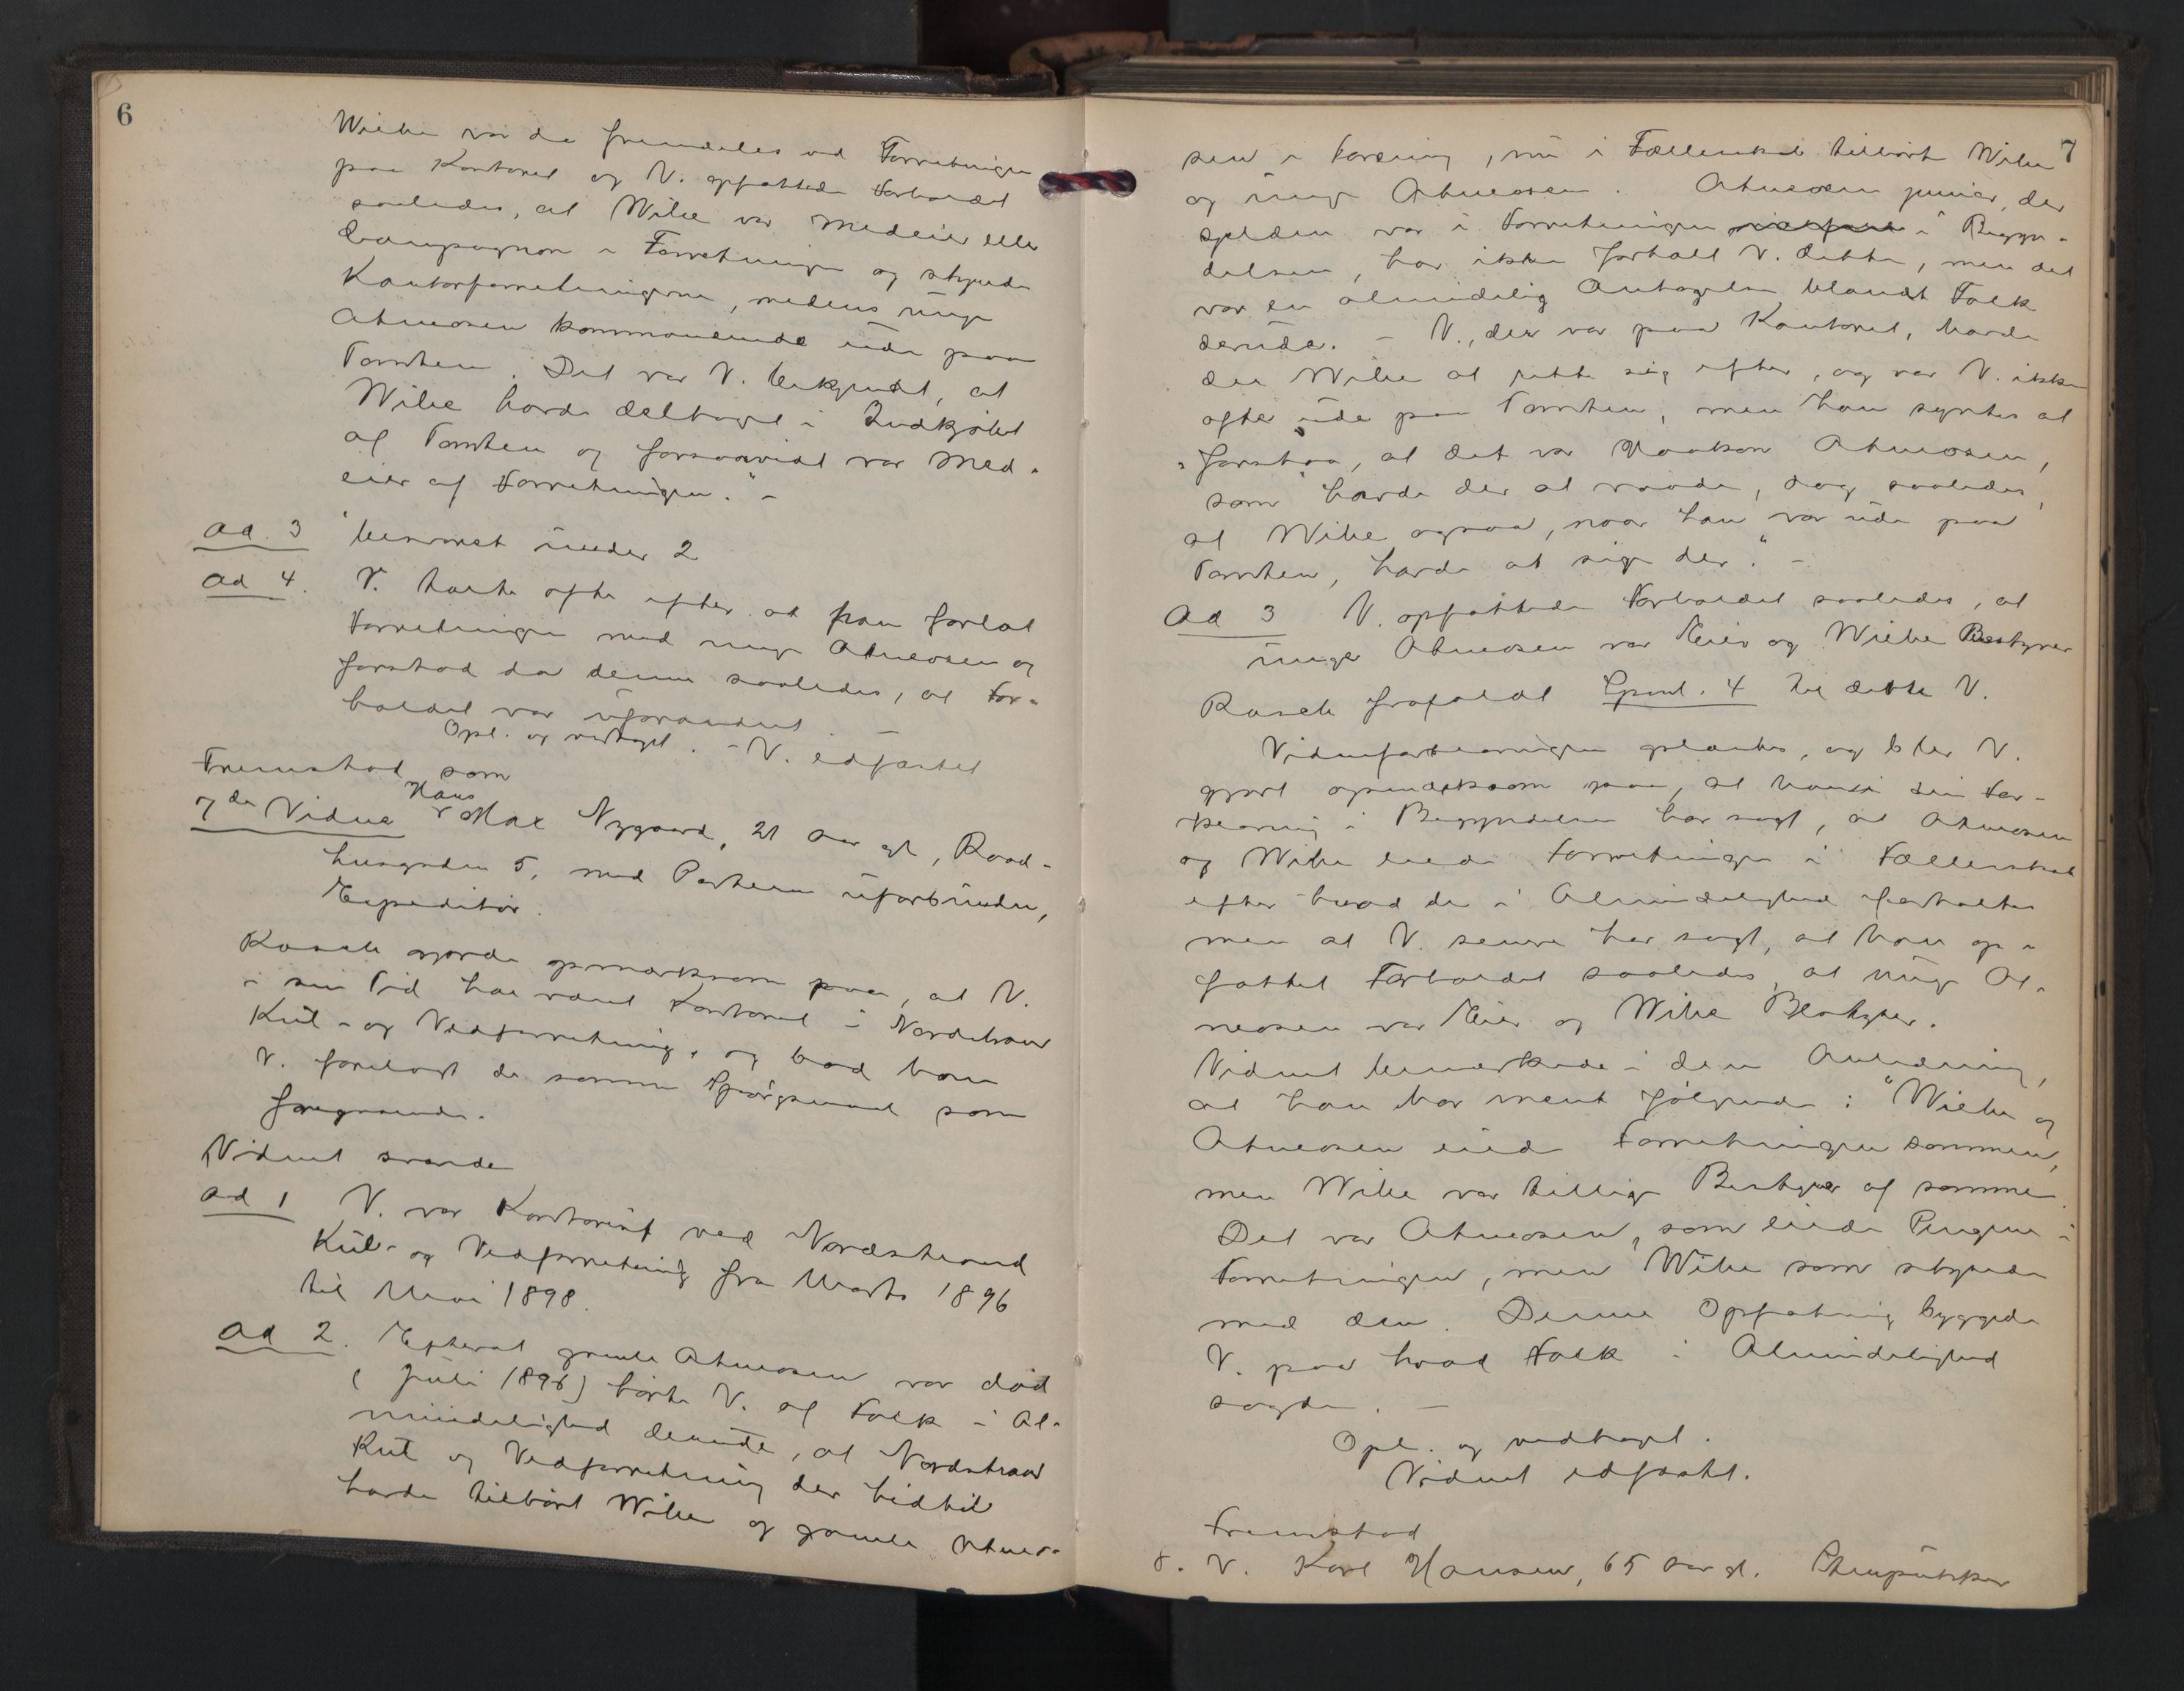 6
Wiebe var da fremdeles ved Forretningen
paa Kontoret og V. opfattede Forholdet
saaledes, at Wibe var Medeier eller
Compagnon i Forretningen og styrede
Kontorforretningerne, medens unge
Atneosen kommanderede ude paa
Tomten. Det var V. bekjendt, at
Wibe havde deltaget i Indkjøbet
af Tomten og forsaavidt var Med-
eier af Forretningen." -
Ad. 3 besvaret under 2
Ad 4. V. talte ofte efter at han forlot
Forretningen med unge Atneosen og
forstod da denne saaledes, at For-
holdet var uforandret. -
Opl. og vedtaget. - V. edfæstet
Fremstod som
7de Vidne Hans Max Nygaard, 21 Aar gl, Raad-
husgaden 5, med Parterne uforbunden,
Expeditør.
Rasch gjorde opmærksom paa, at V.
i sin Tid har været Kontorist i Nordstrand
Kul- og Vedforretning, og bad ham
V. forelagt de samme Spørgsmaal som
foregaaende.
Vidnet svarede
Ad 1 V. var Kontorist ved Nordstrand
Kul- og Vedforretning fra Marts 1896
til Mai 1898.
Ad 2. Efterat gamle Atneosen var død
(Juli 1896) hørte V. af Folk i Al-
mindelighed derude, at Nordstrand
Kul og Vedforretning der hidtil
havde tilhørt Wibe og gamle Atneo-
7
sen i Forening, nu i Fællesskab tilhørte Wibe
og unge Atneosen. Atneosen junior, der
sjelden var i Forretningen i Begyn-
delsen, har ikke fortalt V. dette, men det
var en almindelig Antagelse blandt Folk
derude. - V., der var paa Kontoret, havde
der Wibe at rette sig efter, og var V. ikke
ofte ude paa Tomten, men han syntes at
forstaa, at det var Haakon Atneosen,
som havde der at raade, dog saaledes,
at Wibe ogsaa, naar han var ude paa
Tomten, havde at sige der." -
Ad 3 V. opfattede Forholdet saaledes, at
unge Atneosen var Eier og Wiebe Bestyrer
Rasch frafaldt Spml. 4 til dette V.
Vidneforklaringen oplæstes, og blev V.
gjort opmærksom paa, at han i sin For-
klaring i Begyndelsen har sagt, at Atneosen
og Wibe eiede Forretningen i Fællesskab
efter hvad der i Almindelighed fortaltes
men at V. senere har sagt, at han op-
fattet Forholdet saaledes, at unge At-
neosen var Eier og Wibe Bestyrer.
Vidnet bemærkede i den Anledning,
at han har ment følgende: "Wiebe og
Atneosen eied Forretningen sammen,
men Wibe var tillige Bestyrer af samme.
Det var Atneosen, som eiede Pengene i
Forretningen, men Wibe som styrede
med den. Denne Opfatning byggede
V. paa hvad Folk i Almindelighed
sagde. -
Opl. og vedtaget.
Vidnet edfæstet.
Fremstod
8. V. Karl Hansen, 65 Aar gl. Stenpukker